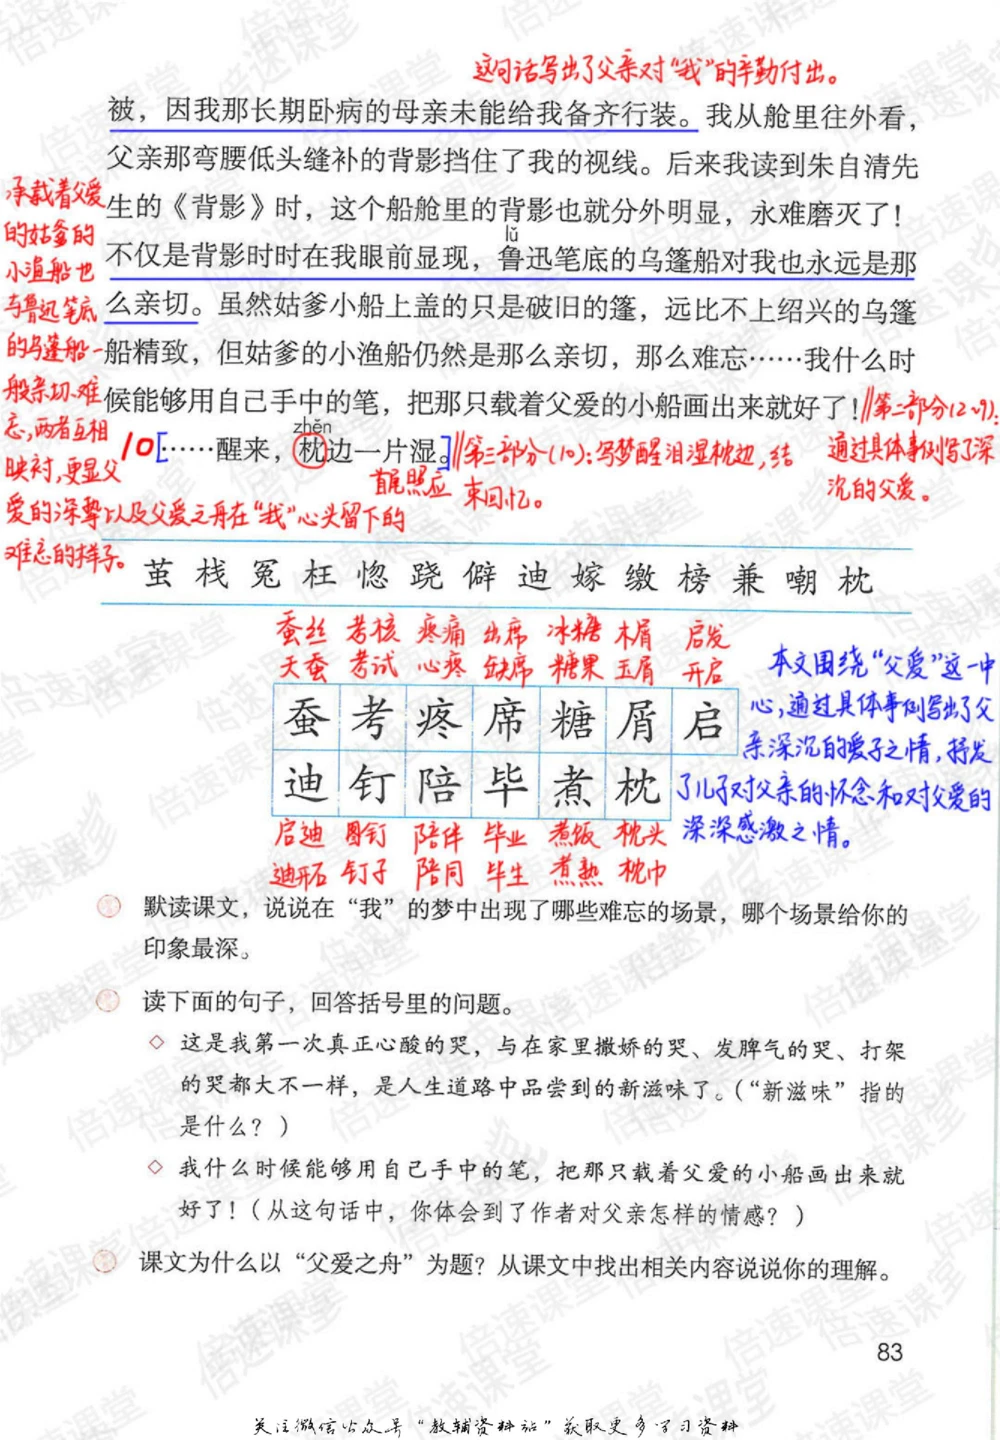 这句话写出了父亲对“我”的辛勤付出。
被，因我那长期卧病的母亲未能给我备齐行装。我从舱里往外看，
父亲那弯腰低头缝补的背影挡住了我的视线。后来我读到朱自清先
生的《背影》时，这个船舱里的背影也就分外明显，永难磨灭了！
lǔ
不仅是背影时时在我眼前显现，鲁迅笔底的乌篷船对我也永远是那
么亲切。虽然姑爹小船上盖的只是破旧的篷，远比不上绍兴的乌篷
船精致，但姑爹的小渔船仍然是那么亲切，那么难忘……我什么时
候能够用自己手中的笔，把那只载着父爱的小船画出来就好了！
zhěn
10［……醒来，枕边一片湿。］
承载着父爱
的姑爹的
小渔船也
与鲁迅笔底
的乌篷船一
般亲切、难
忘，两者互相
映衬，更显父
爱的深挚以及父爱之舟在“我”心头留下的
难忘的样子。
首尾照应
‖第三部分(10)：写梦醒泪湿枕边，结
束回忆。
‖第二部分(2~9)：
通过具体事例写了深
沉的父爱。
茧 栈 冤 枉 惚 跷 僻 迪 嫁 缴 榜 兼 嘲 枕
蚕丝 考核 疼痛 出席 冰糖 木屑 启发
天蚕 考试 心疼 缺席 糖果 玉屑 开启
蚕 考 疼 席 糖 屑 启
迪 钉 陪 毕 煮 枕
启迪 图钉 陪伴 毕业 煮饭 枕头
迪石 钉子 陪同 毕生 煮熟 枕巾
本文围绕“父爱”这一中
心，通过具体事例写出了父
亲深沉的爱子之情，抒发
了儿子对父亲的怀念和对父爱的
深深感激之情。
默读课文，说说在“我”的梦中出现了哪些难忘的场景，哪个场景给你的
印象最深。
读下面的句子，回答括号里的问题。
◇ 这是我第一次真正心酸的哭，与在家里撒娇的哭、发脾气的哭、打架
的哭都大不一样，是人生道路中品尝到的新滋味了。（“新滋味”指的
是什么？）
◇ 我什么时候能够用自己手中的笔，把那只载着父爱的小船画出来就
好了！（从这句话中，你体会到了作者对父亲怎样的情感？）
课文为什么以“父爱之舟”为题？从课文中找出相关内容说说你的理解。
83
关注微信公众号“教辅资料站”获取更多学习资料
倍速课堂